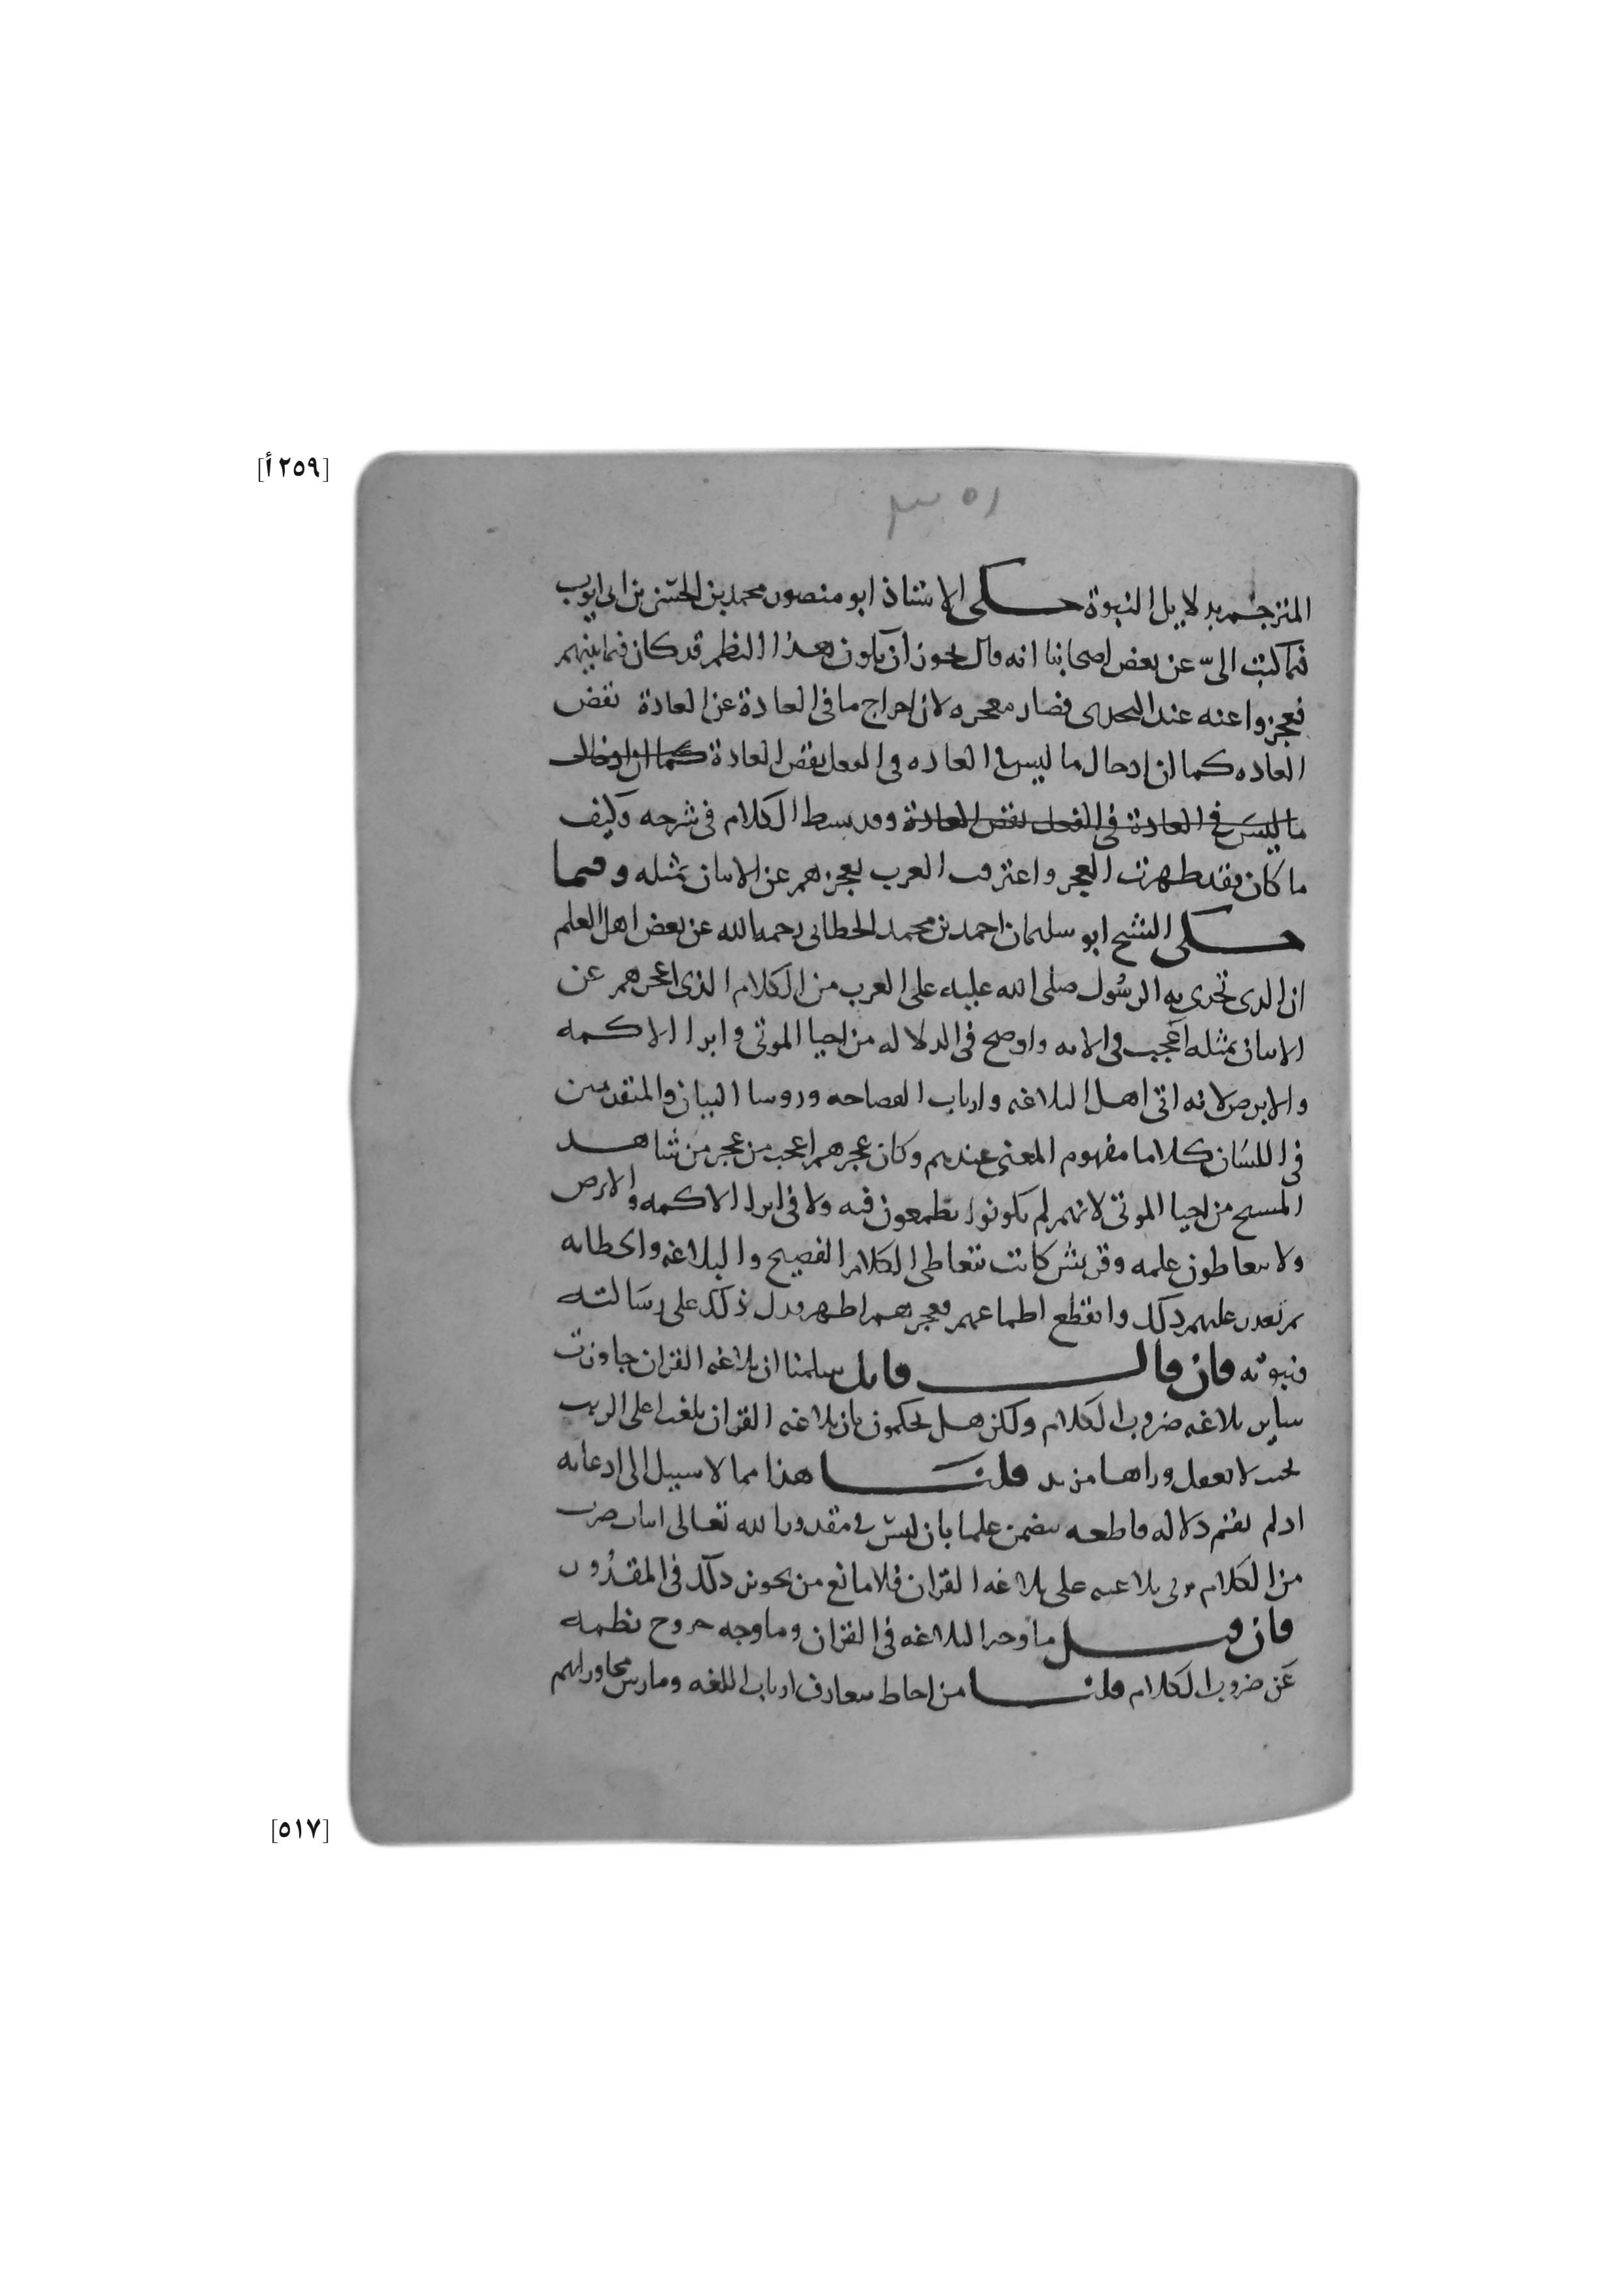 [٢٥٩ أ]
المترجم بدلايل النبوة حكى الاستاذ ابو منصور محمد بن الحسن بن ابى ايوب
فيما كتب الىّ عن بعض اصحابنا انه قال يجوز ان يكون هذا النظم قد كان فيما بينهم
فعجزوا عنه عند التحدى فصار معجزه لان اخراج ما فى العادة عن العادة نقض
العاده كما ان ادخال ما ليس فى العاده فى الفعل نقض العادة كما ان ادخال
ما ليس فى العادة فى الفعل نقض العادة وقد بسط الكلام فى شرحه وكيف
ما كان فقد ظهرت العجز واعترفت العرب بعجزهم عن الاتيان بمثله وفيما
حكى الشيخ ابو سليمان احمد بن محمد الخطابى رحمه الله عن بعض اهل العلم
ان الذى تحدى به الرسول صلى الله عليه على العرب من الكلام الذى اعجزهم عن
الاتيان بمثله اعجب فى الايه واوضح فى الدلاله من احيا الموتى وابرا الاكمه
والابرص لانه اتى اهل البلاغه وارباب الفصاحه وروسا البيان والمتقدمين
فى اللسان كلاما مفهوم المعنى عندهم وكان عجزهم اعجب من عجز من شاهد
المسيح من احيا الموتى لانهم لم يكونوا يطمعون فيه ولا فى ابرا الاكمه والابرص
ولا يتعاطون علمه وقريش كانت تتعاطى الكلام الفصيح والبلاغه والخطابه
ثم تعذر عليهم ذلك وانقطع اطماعهم فعجزهم اظهر ودل ذلك على رسالته
ونبوته فان قال قايل سلمنا ان بلاغه القران جاوزت
ساير بلاغه ضروب الكلام ولكن هل تحكمون بان بلاغه القران بلغت اعلى الرتب
بحيث لا يعقل وراها مزيد قلنا هذا مما لا سبيل الى ادعايه
اذ لم يقم دلاله قاطعه يتضمن علما بان ليس فى مقدور الله تعالى اتيان ضرب
من الكلام يربى بلاغته على بلاغه القران فلا مانع من تجويز ذلك فى المقدور
فان قيل ما وجه البلاغه فى القران وما وجه خروج نظمه
عن ضروب الكلام قلنا من احاط بمعارف ارباب اللغه ومارس محاوراتهم
[٥١٧]